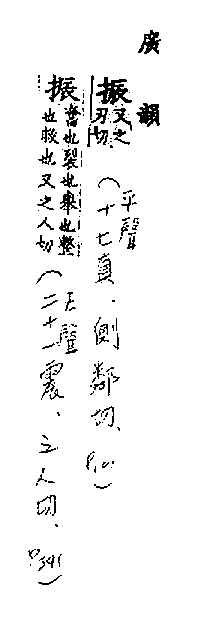 廣韻
振 又之刃切 (平聲 十七真、側鄰切、
振 奮也裂也舉也整也救也又之人切 (去聲 二十一震、之人切、